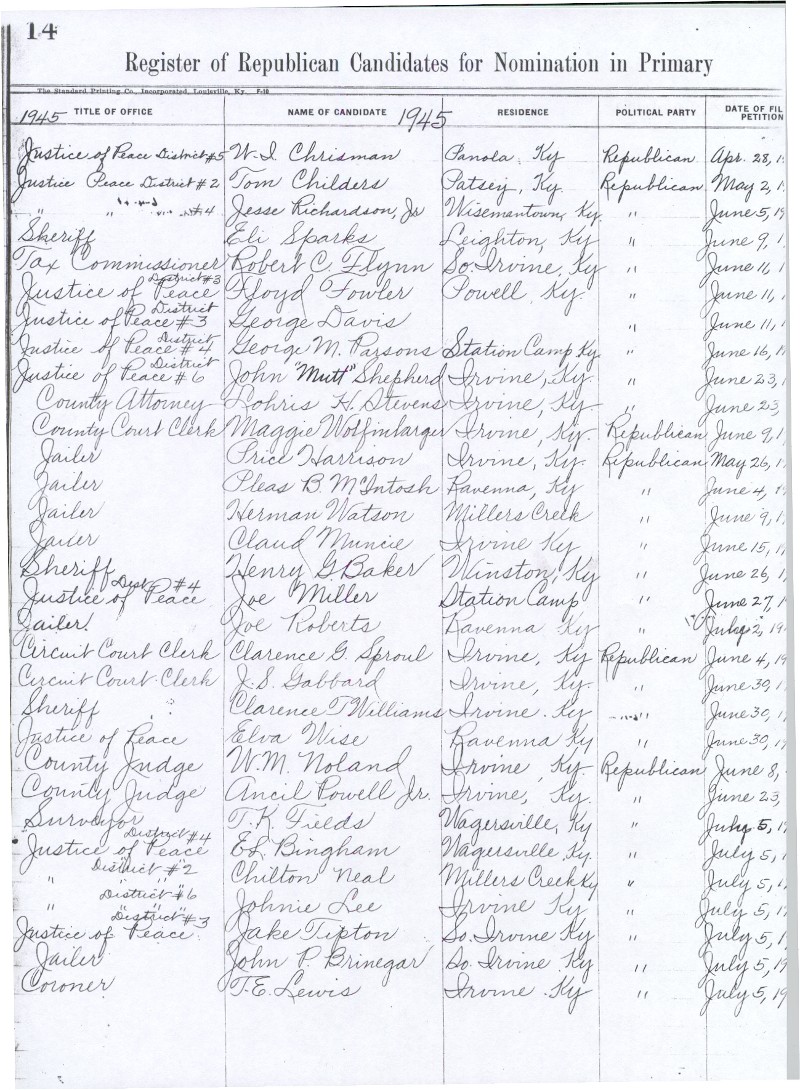 14
Register of Republican Candidates for Nomination in Primary
The Standard Printing Co., Incorporated, Louisville, Ky. F-10
1945 TITLE OF OFFICE NAME OF CANDIDATE 1945 RESIDENCE POLITICAL PARTY DATE OF FIL PETITION
Justice of Peace District #5 W. I. Chrisman Panola, Ky Republican Apr. 28, 1
Justice Peace District #2 Tom Childers Patsey, Ky. Republican May 2, 1
" " " #4 Jesse Richardson, Jr Wisemantown, Ky " June 5, 19
Sheriff Eli Sparks Leighton, Ky " June 9, 1
Tax Commissioner Robert C. Flynn So. Irvine, Ky " June 16, 1
Justice of Peace District #3 Floyd Fowler Powell, Ky. " June 11, 1
Justice of Peace District #3 George Davis " June 11, 1
Justice of Peace District #4 George M. Parsons Station Camp Ky " June 16, 1
Justice of Peace District #6 John "Mutt" Shepherd Irvine, Ky. " June 23, 1
County Attorney Lohris H. Stevens Irvine, Ky. " June 23,
County Court Clerk Maggie Wolfinbarger Irvine, Ky. Republican June 9, 1
Jailer Price Harrison Irvine, Ky. Republican May 26, 1
Jailer Pleas B. McIntosh Ravenna, Ky " June 4, 1
Jailer Herman Watson Millers Creek " June 9, 1
Jailer Claud Muncie Irvine Ky " June 15, 1
Sheriff Henry G. Baker Winston, Ky " June 26, 1
Justice of Peace Dist #4 Joe Miller Station Camp " June 27, 1
Jailer Joe Roberts Ravenna Ky " July 2, 19
Circuit Court Clerk Clarence G. Sproul Irvine, Ky Republican June 4, 19
Circuit Court Clerk J. S. Gabbard Irvine, Ky. " June 30, 1
Sheriff Clarence T Williams Irvine. Ky " June 30, 1
Justice of Peace Elva Wise Ravenna Ky " June 30, 19
County Judge W. M. Noland Irvine, Ky. Republican June 8,
County Judge Ancil Powell Jr. Irvine, Ky. " June 23,
Surveyor T. K. Fields Wagersville, Ky " July 5, 19
Justice of Peace District #4 E L Bingham Wagersville, Ky. " July 5, 1
" District #2 Chilton Neal Millers Creek Ky " July 5, 1
" District #6 Johnie Lee Irvine Ky " July 5, 1
Justice of Peace District #3 Jake Tipton So. Irvine Ky " July 5, 1
Jailer John P. Brinegar So. Irvine Ky " July 5, 19
Coroner T. E. Lewis Irvine. Ky " July 5, 19